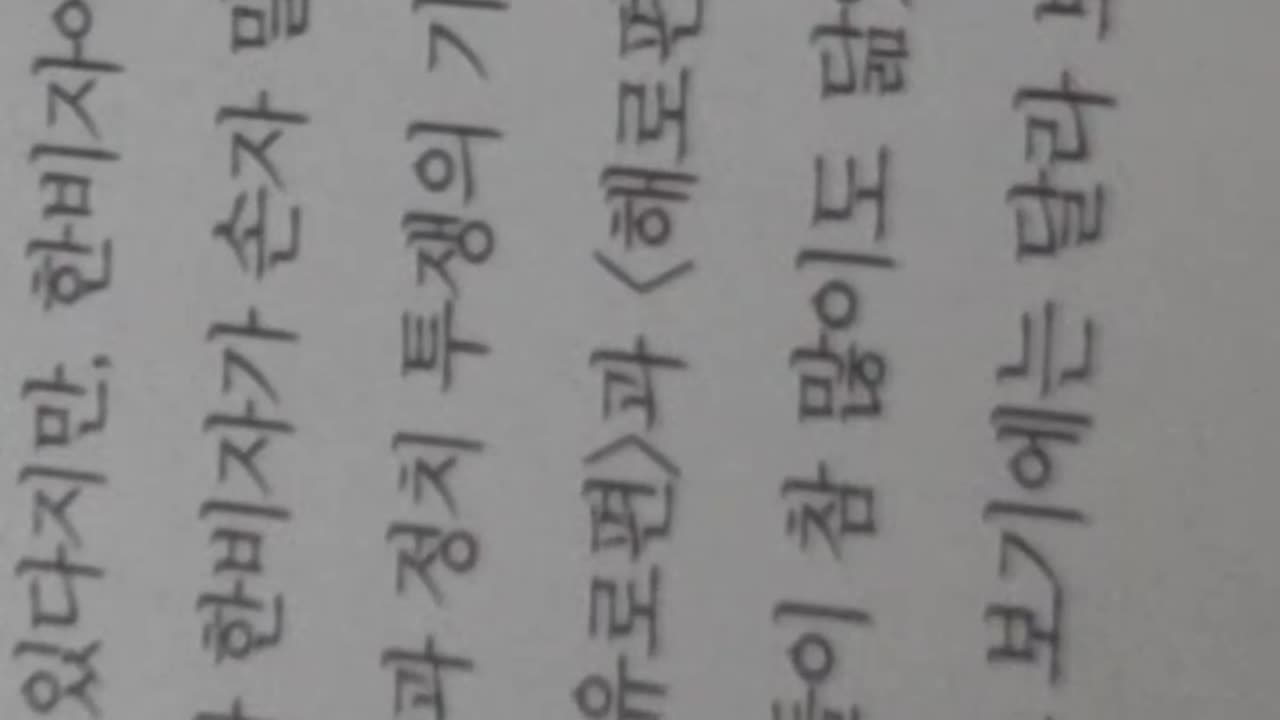 있다지만, 한비자
한비자가 손자
과 정치 투쟁의
유로편>과 <해로편
참 많이도
보기에는 달라